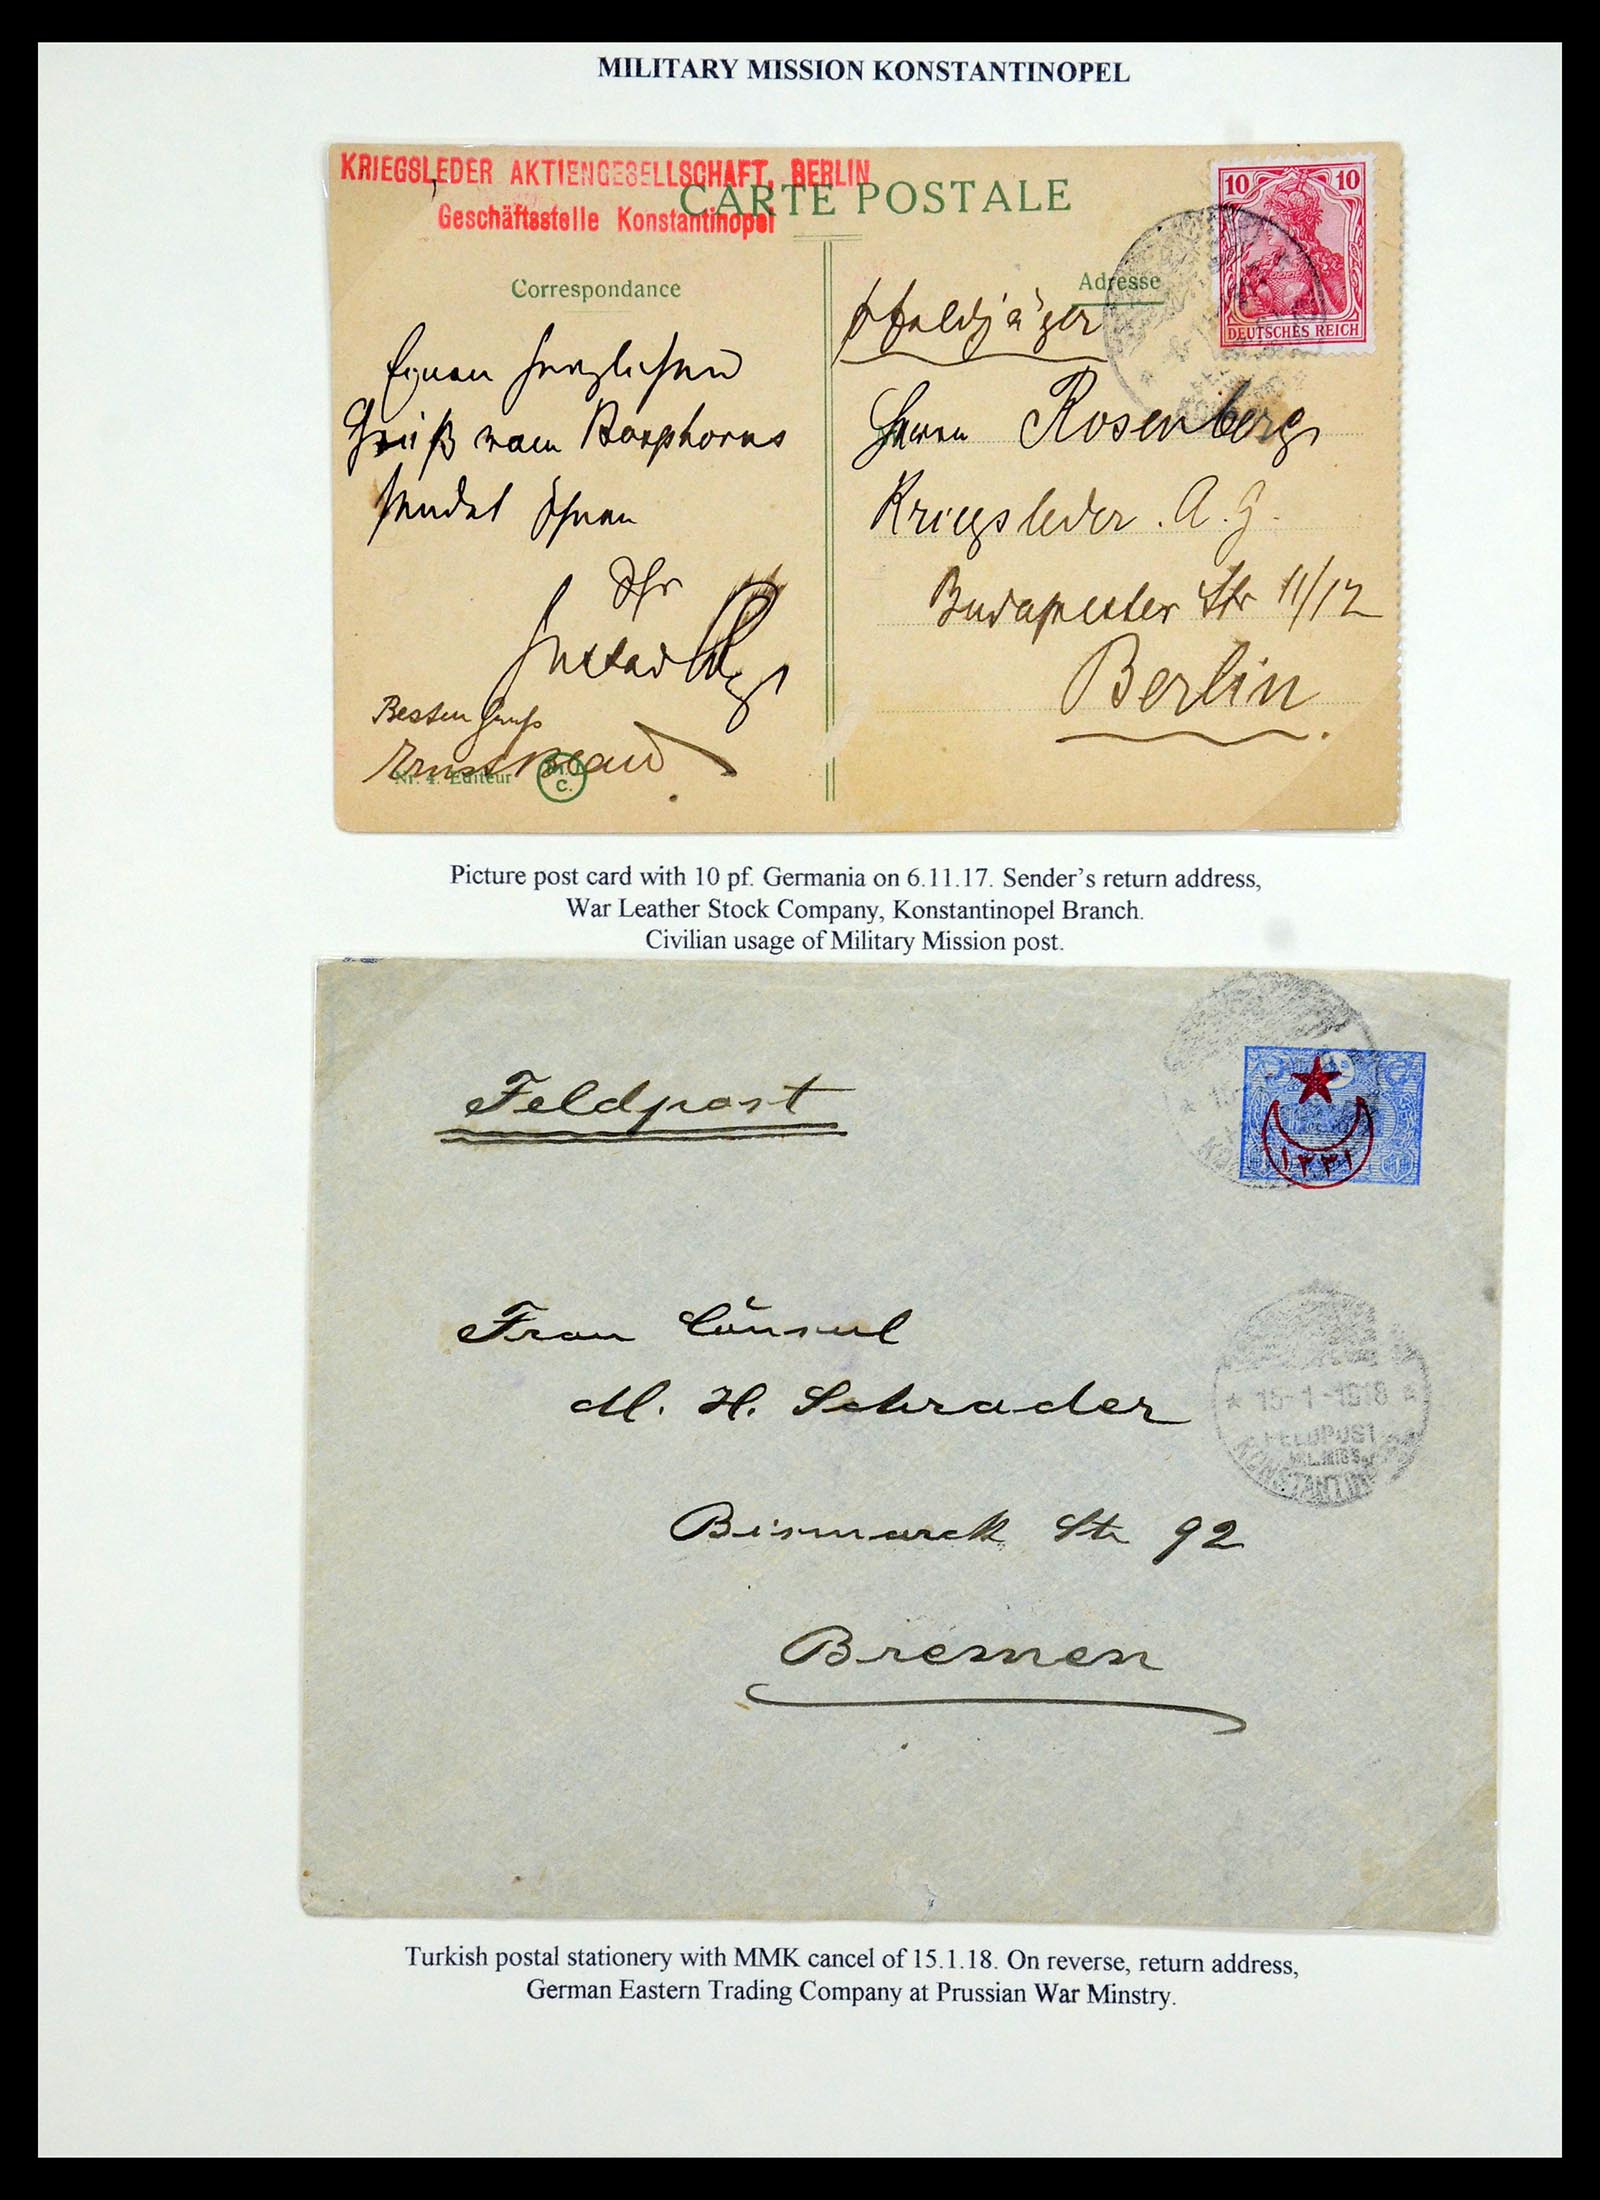 MILITARY MISSION KONSTANTINOPEL
KRIEGSLEDER AKTIENGESELLSCHAFT, BERLIN
Geschäftsstelle Konstantinopel
CARTE POSTALE
10 10
DEUTSCHES REICH
Correspondance
Adresse
Einen herzlichen
Gruß vom Bosphorus
sendet Ihnen
Ihr
Gustav
Besten Gruß
Ernst
Nr. 4. Editeur
C.
Herrn Rosenberg
Kriegsleder A.G.
Budapester Str 11/12
Berlin.
Picture post card with 10 pf. Germania on 6.11.17. Sender's return address,
War Leather Stock Company, Konstantinopel Branch.
Civilian usage of Military Mission post.
Feldpost
١٣٣١
Frau Cónsul
M. H. Schrader
Bismarck Str 92
Bremen
* 15-1-1918 *
FELDPOST
MIL.MISS.
KONSTANTINOPEL
Turkish postal stationery with MMK cancel of 15.1.18. On reverse, return address,
German Eastern Trading Company at Prussian War Minstry.